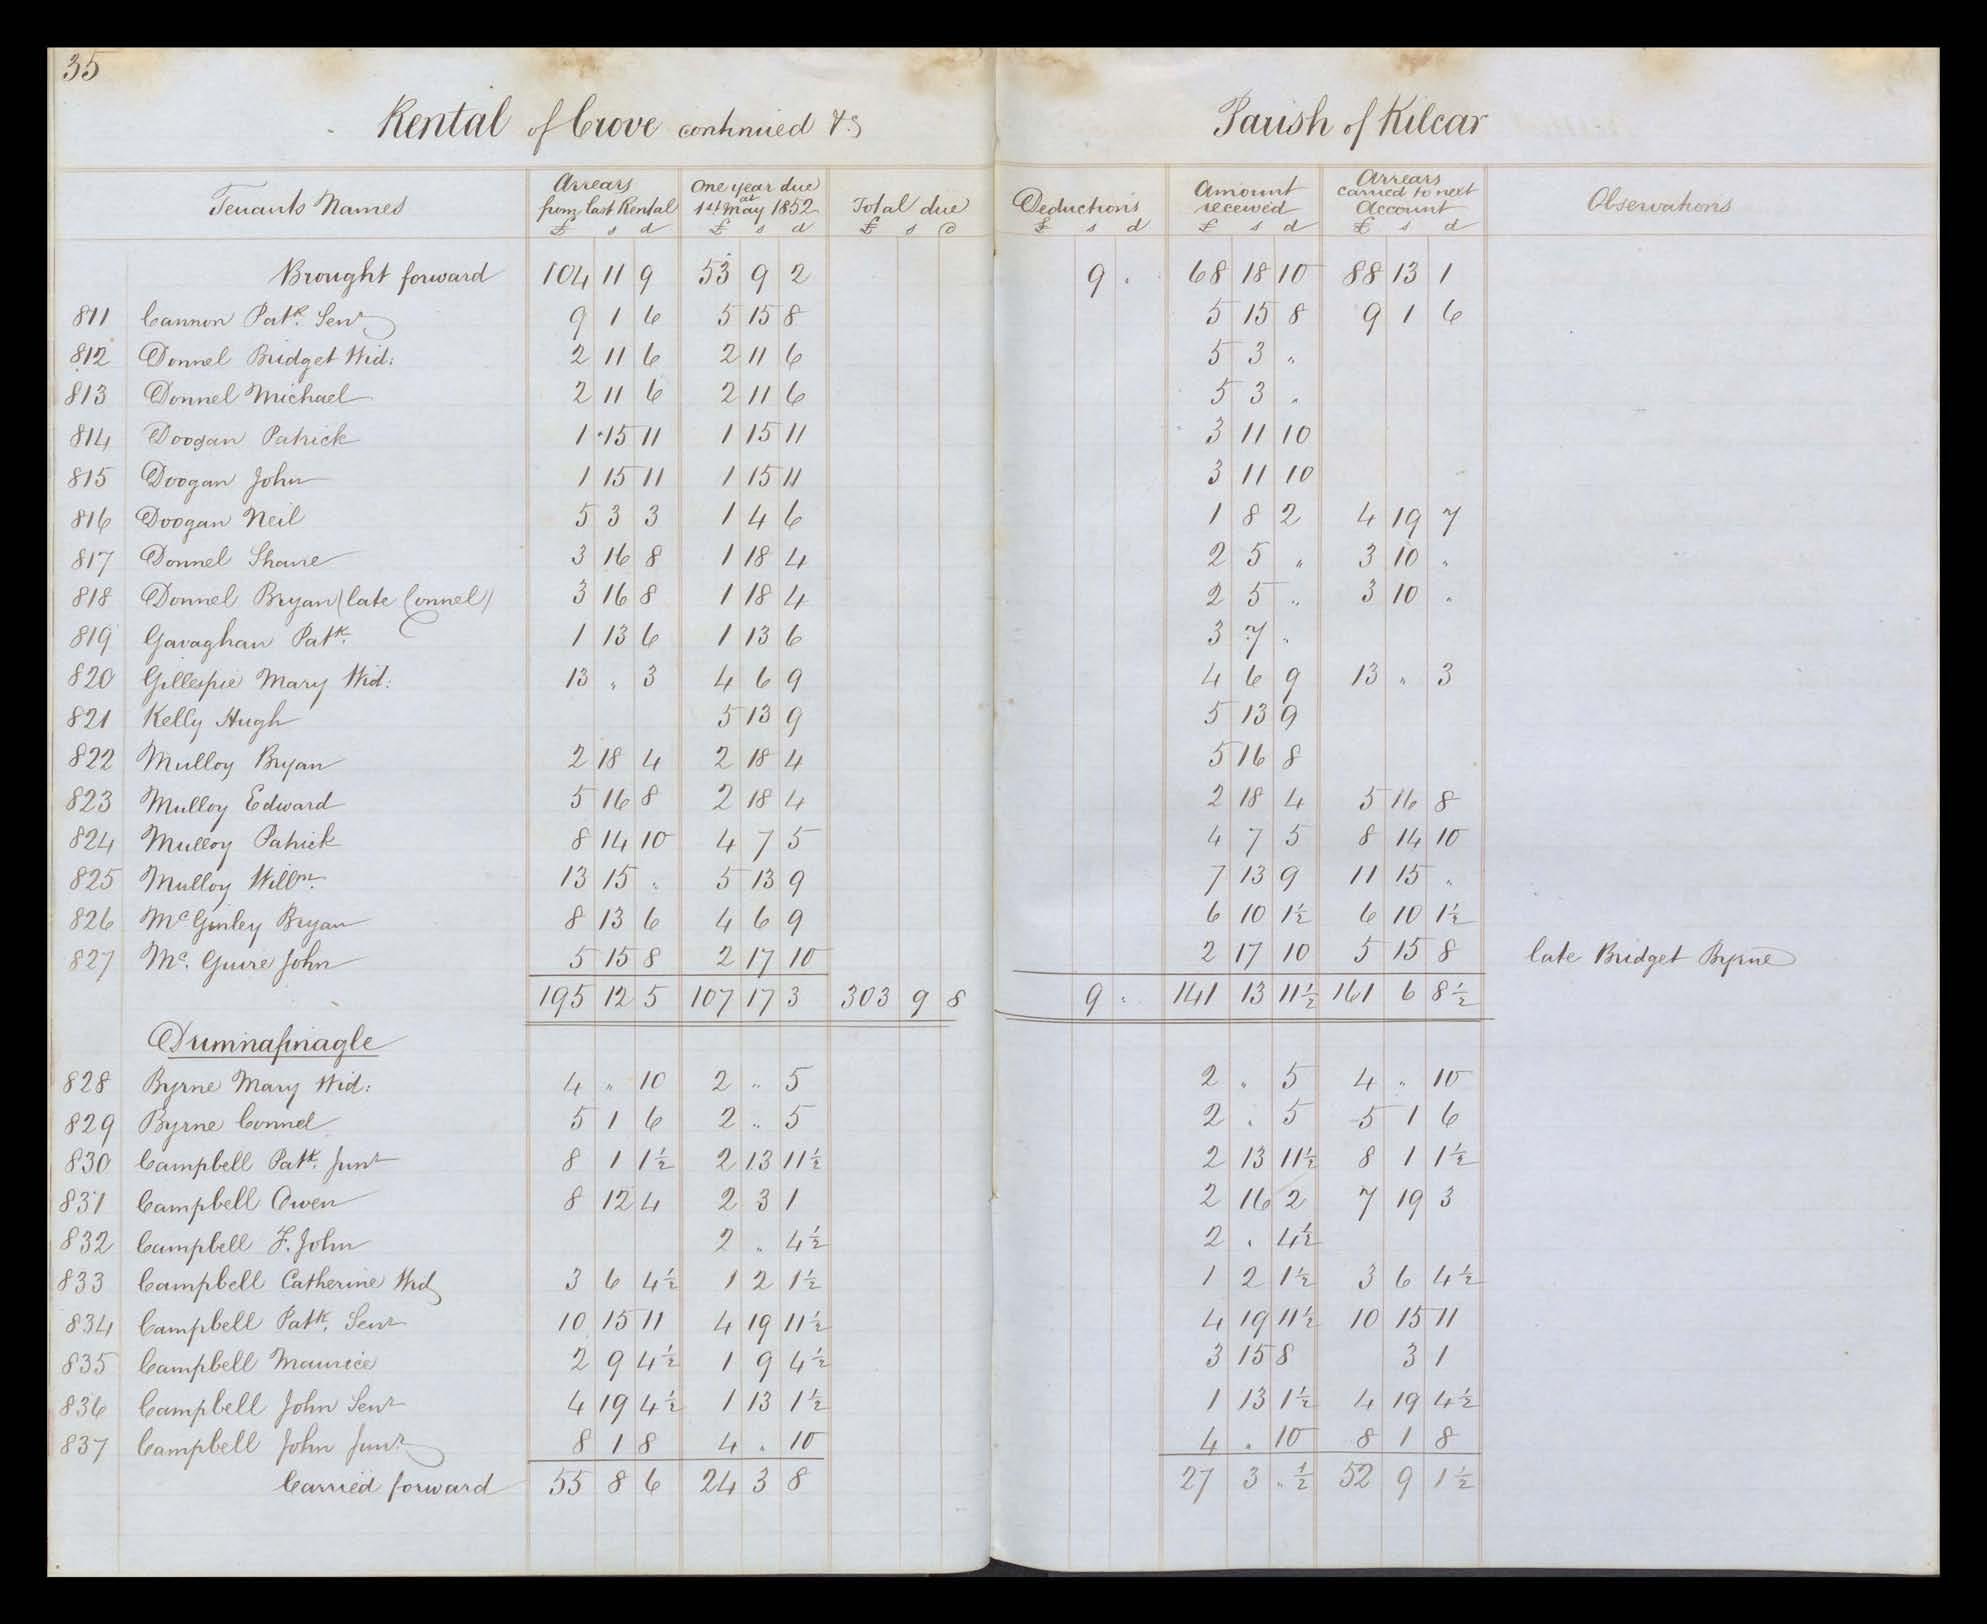 35
Rental of Crove continued &c Parish of Kilcar
Tenants Names Arrears from last Rental £ s d One year due at 1st May 1852 £ s d Total due £ s d Deductions £ s d Amount received £ s d Arrears carried to next Account £ s d Observations
Brought forward 104 11 9 53 9 2 9 . 68 18 10 88 13 1
811 Cannon Patk. Senr 9 1 6 5 15 8 5 15 8 9 1 6
812 Donnel Bridget Wid: 2 11 6 2 11 6 5 3 "
813 Donnel Michael 2 11 6 2 11 6 5 3 "
814 Doogan Patrick 1 15 11 1 15 11 3 11 10
815 Doogan John 1 15 11 1 15 11 3 11 10
816 Doogan Neil 5 3 3 1 4 6 1 8 2 4 19 7
817 Donnel Shane 3 16 8 1 18 4 2 5 " 3 10 "
818 Donnel Bryan (late Connel) 3 16 8 1 18 4 2 5 " 3 10 "
819 Gavaghan Patk. 1 13 6 1 13 6 3 7 "
820 Gillespie Mary Wid: 13 " 3 4 6 9 4 6 9 13 " 3
821 Kelly Hugh 5 13 9 5 13 9
822 Mulloy Bryan 2 18 4 2 18 4 5 16 8
823 Mulloy Edward 5 16 8 2 18 4 2 18 4 5 16 8
824 Mulloy Patrick 8 14 10 4 7 5 4 7 5 8 14 10
825 Mulloy Willm. 13 15 " 5 13 9 7 13 9 11 15 "
826 McGinley Bryan 8 13 6 4 6 9 6 10 1½ 6 10 1½
827 Mc. Guire John 5 15 8 2 17 10 2 17 10 5 15 8 late Bridget Byrne
195 12 5 107 17 3 303 9 8 9 " 141 13 11½ 161 6 8½
Drimnafinagle
828 Byrne Mary Wid: 4 " 10 2 " 5 2 " 5 4 " 10
829 Byrne Connel 5 1 6 2 " 5 2 " 5 5 1 6
830 Campbell Patk. Junr 8 1 1½ 2 13 11½ 2 13 11½ 8 1 1½
831 Campbell Owen 8 12 4 2 3 1 2 16 2 7 19 3
832 Campbell F. John 2 " 4½ 2 " 4½
833 Campbell Catherine Wid 3 6 4½ 1 2 1½ 1 2 1½ 3 6 4½
834 Campbell Patk. Senr 10 15 11 4 19 11½ 4 19 11½ 10 15 11
835 Campbell Maurice 2 9 4½ 1 9 4½ 3 15 8 3 1
836 Campbell John Senr 4 19 4½ 1 13 1½ 1 13 1½ 4 19 4½
837 Campbell John Junr. 8 1 8 4 " 10 4 " 10 8 1 8
Carried forward 55 8 6 24 3 8 27 3 " ½ 52 9 1½